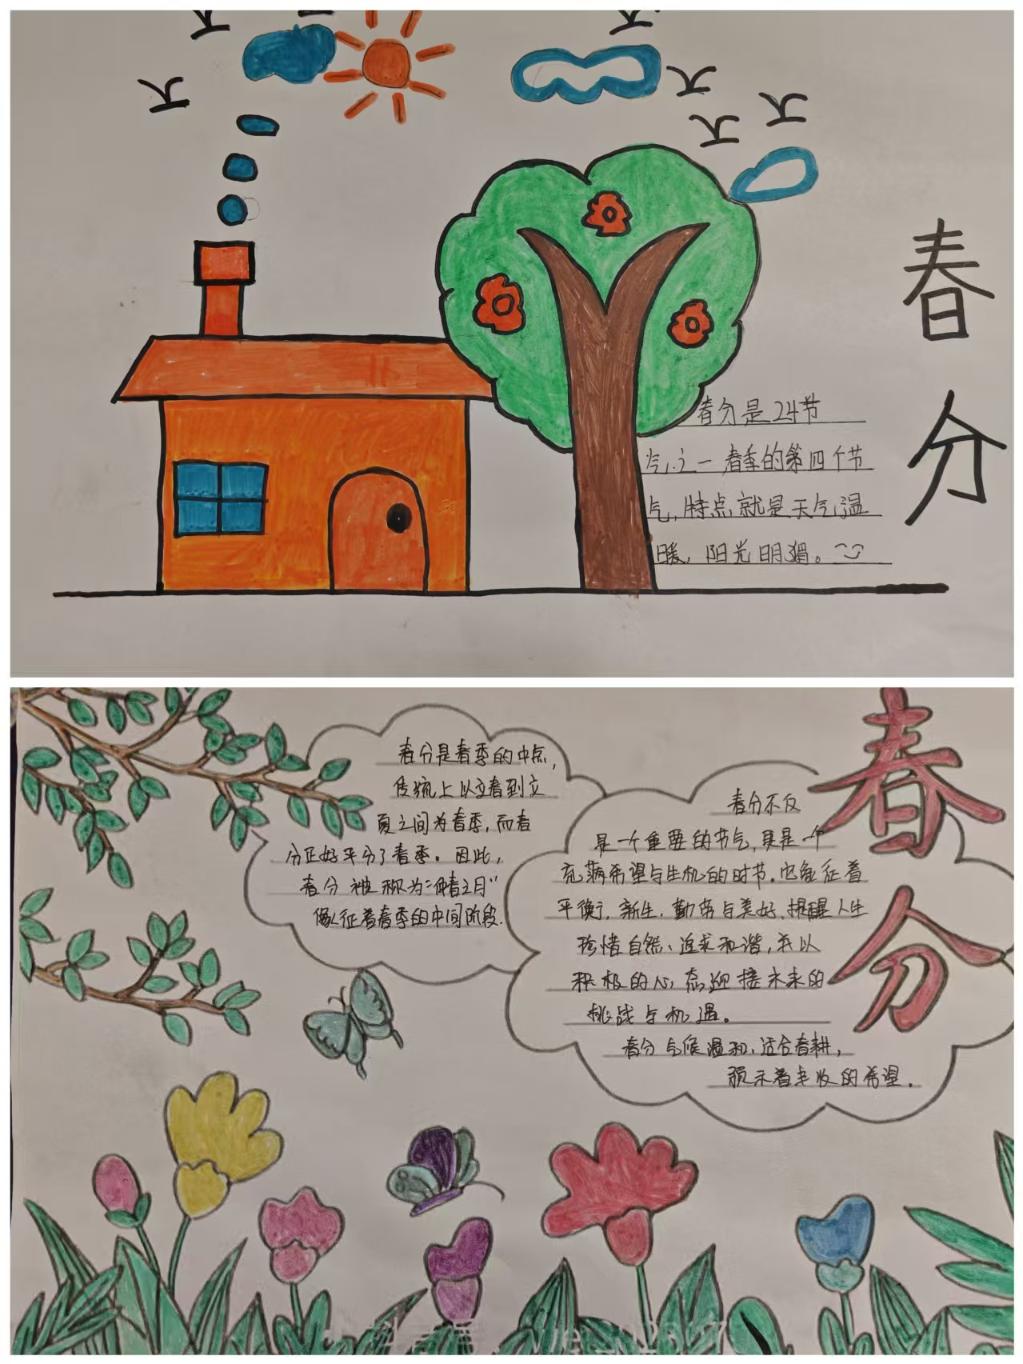 春分
春分是24节
气之一春季的第四个节
气,特点就是天气温
暖,阳光明媚。
春分
春分是春季的中点,
传统上以立春到立
夏之间为春季,而春
分正好平分了春季。因此,
春分被称为“仲春之月”
象征着春季的中间阶段.
春分不仅
是一个重要的节气,更是一个
充满希望与生机的时节.它象征着
平衡、新生、勤劳与美好,提醒人生
珍惜自然、追求和谐,并以
积极的心态迎接未来的
挑战与机遇。
春分气候温和,适合春耕,
预示着丰收的希望.